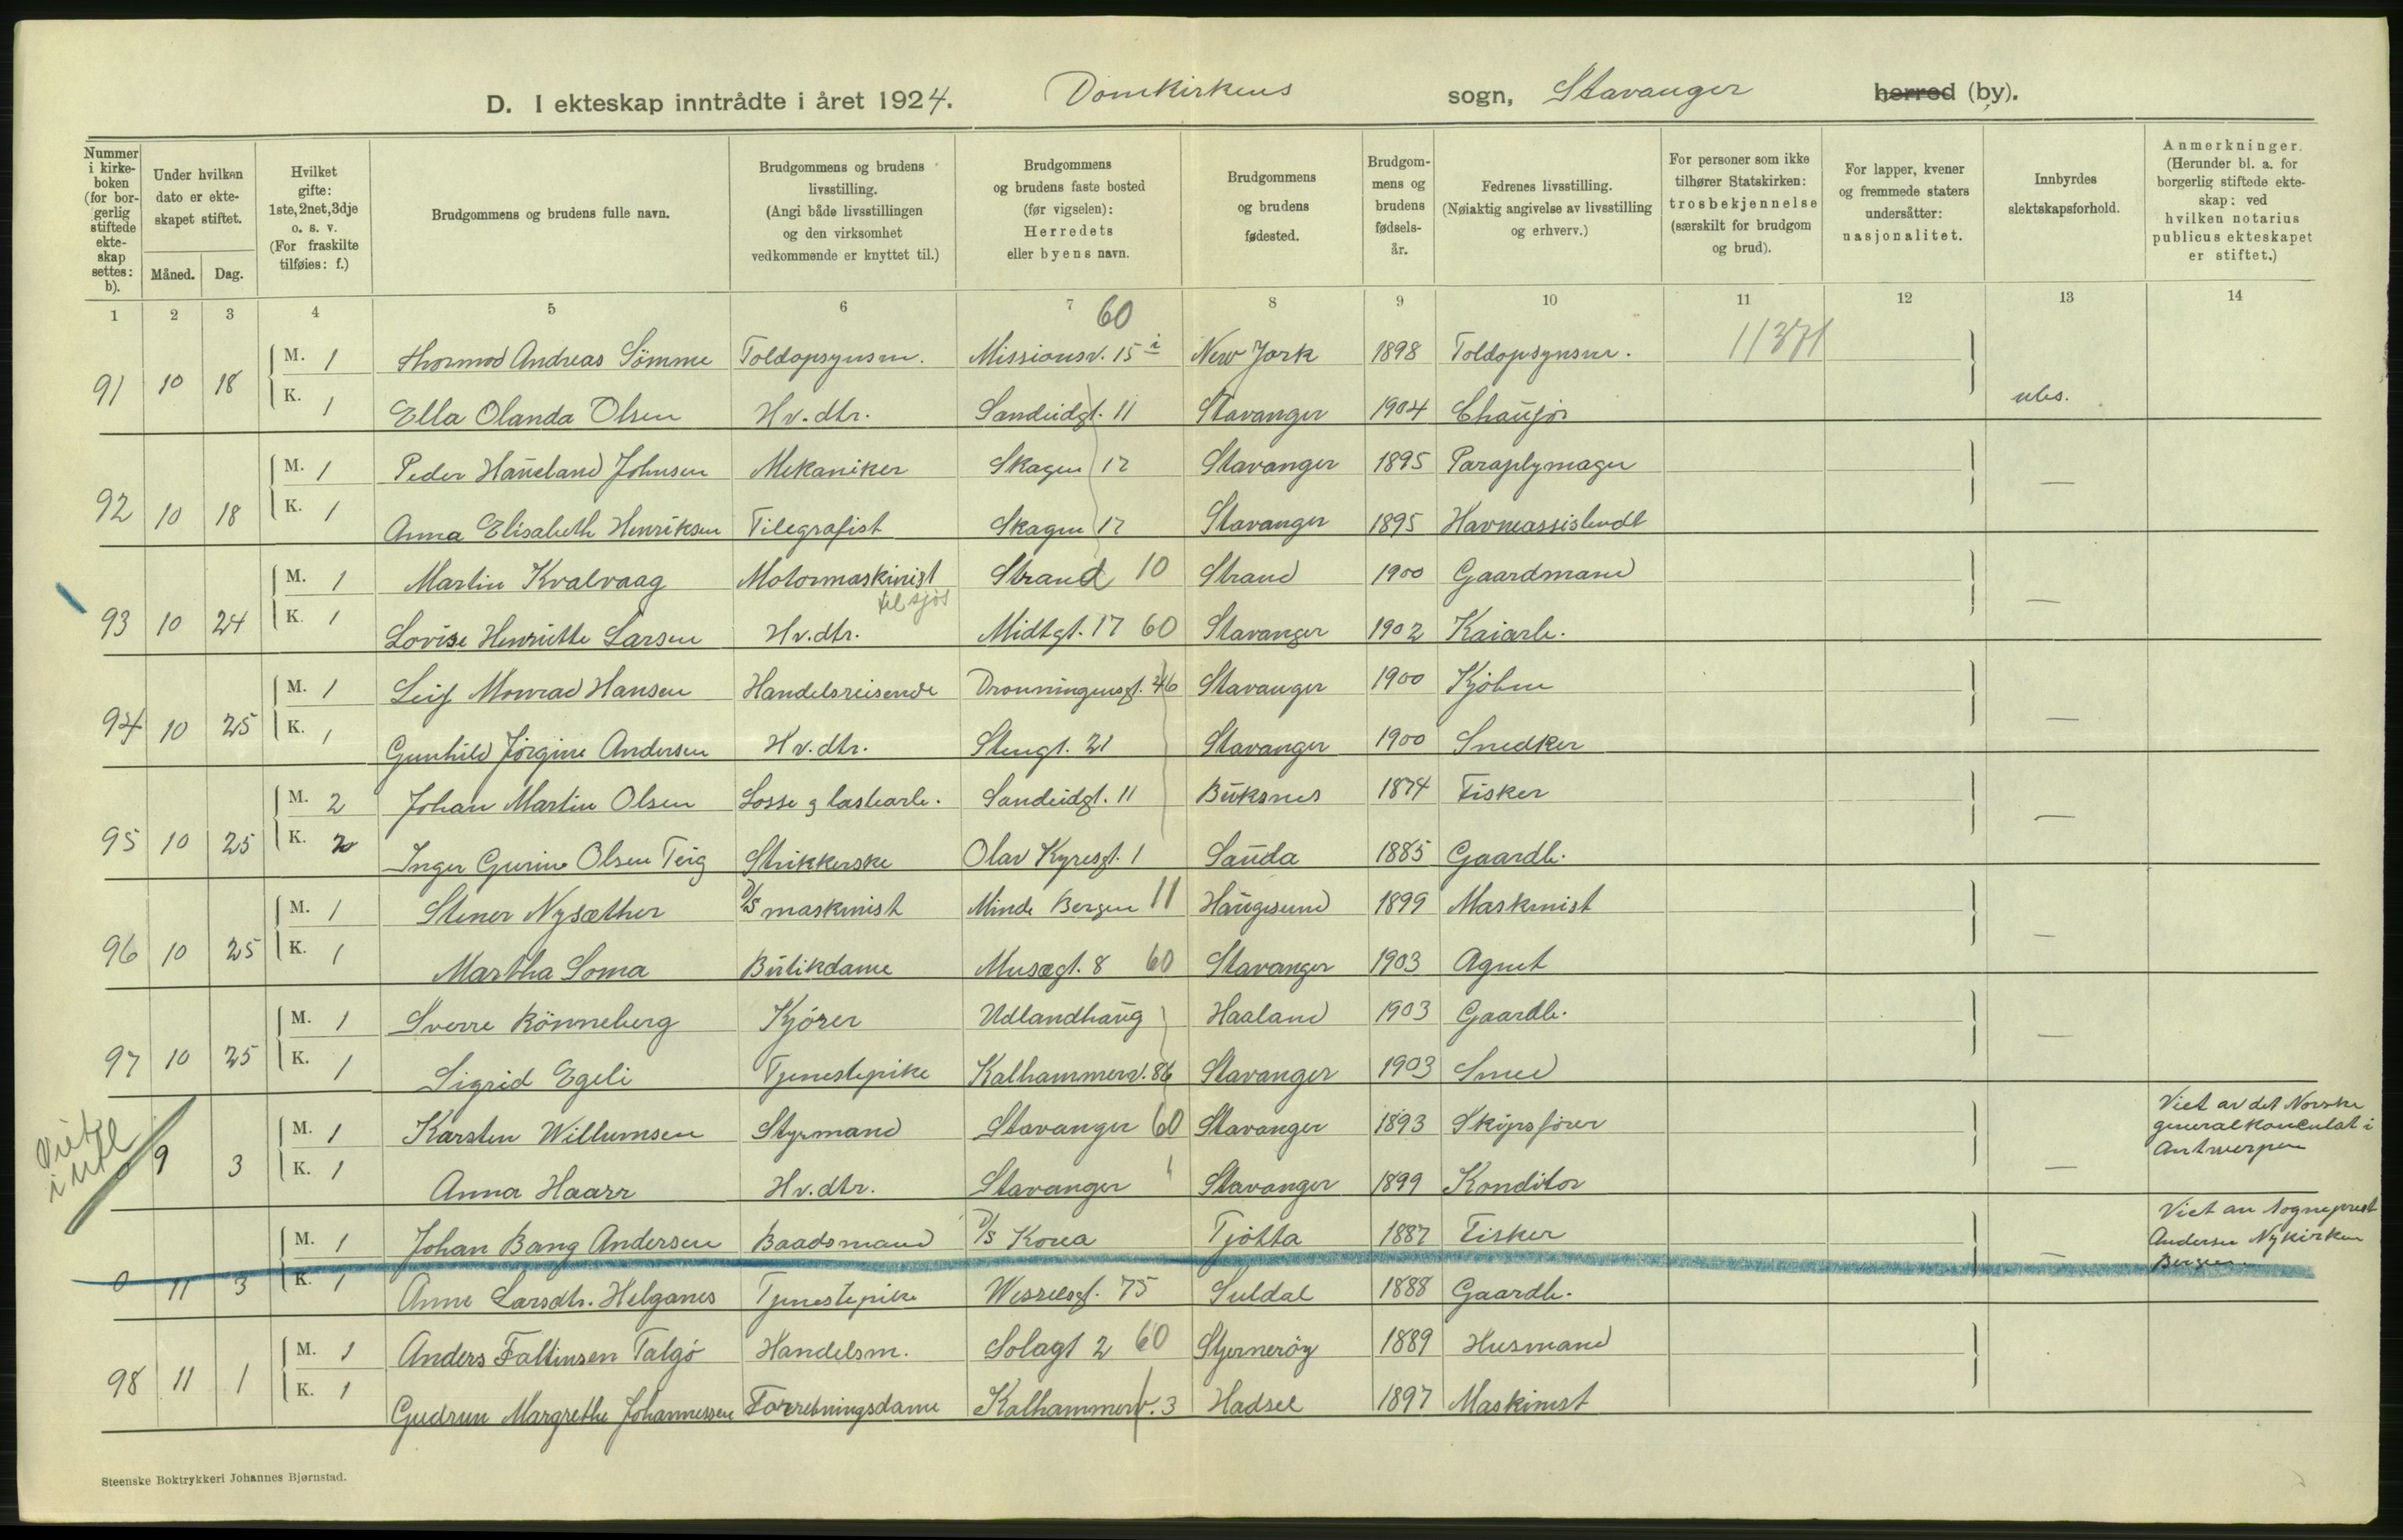 D. I ekteskap inntrådte i året 1924. Domkirkens sogn, Stavanger herred (by).
Nummer i kirkeboken (for borgerlig stiftede ekteskap settes: b).
Under hvilken dato er ekteskapet stiftet.
Måned. Dag.
Hvilket gifte: 1ste, 2net, 3dje o. s. v. (For fraskilte tilføies: f.)
Brudgommens og brudens fulle navn.
Brudgommens og brudens livsstilling. (Angi både livsstillingen og den virksomhet vedkommende er knyttet til.)
Brudgommens og brudens faste bosted (før vigselen): Herredets eller byens navn.
Brudgommens og brudens fødested.
Brudgommens og brudens fødselsår.
Fedrenes livsstilling. (Nøiaktig angivelse av livsstilling og erhverv.)
For personer som ikke tilhører Statskirken: trosbekjennelse (særskilt for brudgom og brud).
For lapper, kvener og fremmede staters undersåtter: nasjonalitet.
Innbyrdes slektskapsforhold.
Anmerkninger. (Herunder bl. a. for borgerlig stiftede ekteskap: ved hvilken notarius publicus ekteskapet er stiftet.)
1 2 3 4 5 6 7 8 9 10 11 12 13 14
60
M. 1 Thormod Andreas Sömme Toldopsynsm. Missionsv. 15 i New York 1898 Toldopsynsm. 11371
91 10 18 K. 1 Ella Olanda Olsen Hv. dtr. Sandeidgt. 11 Stavanger 1904 Chauför ubs.
M. 1 Peder Haueland Johnsen Mekaniker Skagen 12 Stavanger 1895 Paraplymager
92 10 18 K. 1 Anna Elisabeth Henriksen Telegrafist Skagen 17 Stavanger 1895 Havneassistendt —
M. 1 Martin Kvalvaag Motormaskinist til sjøs Strand 10 Strand 1900 Gaardmand
93 10 24 K. 1 Lovise Henriette Larsen Hv. dtr. Midtgt. 17 60 Stavanger 1902 Kaiarb. —
M. 1 Leif Monrad Hansen Handelsreisende Dronningensgt. 46 Stavanger 1900 Kjöbm
94 10 25 K. 1 Gunhild Jörgine Andersen Hv. dtr. Stengt. 21 Stavanger 1900 Snedker —
M. 2 Johan Martin Olsen Losse g lastearb. Sandeidgt. 11 Buksnes 1874 Fisker
95 10 25 K. 2 Inger Gurine Olsen Teig Strikkerske Olav Kyresgt. 1 Sauda 1885 Gaardb. —
M. 1 Stener Nysæther D/S maskinist Minde Bergen 11 Haugesund 1899 Maskinist
96 10 25 K. 1 Martha Soma Butikdame Musægt. 8 60 Stavanger 1903 Agent —
M. 1 Sverre Rönneberg Kjörer Udlandhaug Haaland 1903 Gaardb.
97 10 25 K. 1 Sigrid Egeli Tjenestepike Kalhammerv. 86 Stavanger 1903 Smed —
Viet i utl
M. 1 Karsten Willumsen Styrmand Stavanger 60 Stavanger 1893 Skipsfører Viet av det Norske generalkonsulat i Antwerpen
0 9 3 K. 1 Anna Haarr Hv. dtr. Stavanger Stavanger 1899 Konditor —
M. 1 Johan Bang Andersen Baadsmand D/S Korea Tjötta 1887 Fisker Viet av sogneprest Andersen Nykirken Bergen.
0 11 3 K. 1 Anne Larsdtr. Helganes Tjenestepike Wesselsgt. 75 Suldal 1888 Gaardb. —
M. 1 Anders Faltinsen Talgö Handelsm. Solagt 2 60 Stjerneröy 1889 Husmand
98 11 1 K. 1 Gudrun Margrethe Johannessen Forretningsdame Kalhammerv. 3 Hadsel 1897 Maskinist
Steenske Boktrykkeri Johannes Bjørnstad.